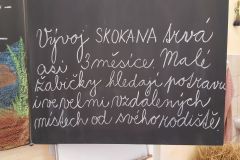 Vývoj SKOKANA trvá
asi 3 měsíce. Malé
žabičky hledají potravu
i ve velmi vzdálených
místech od svého rodiště.